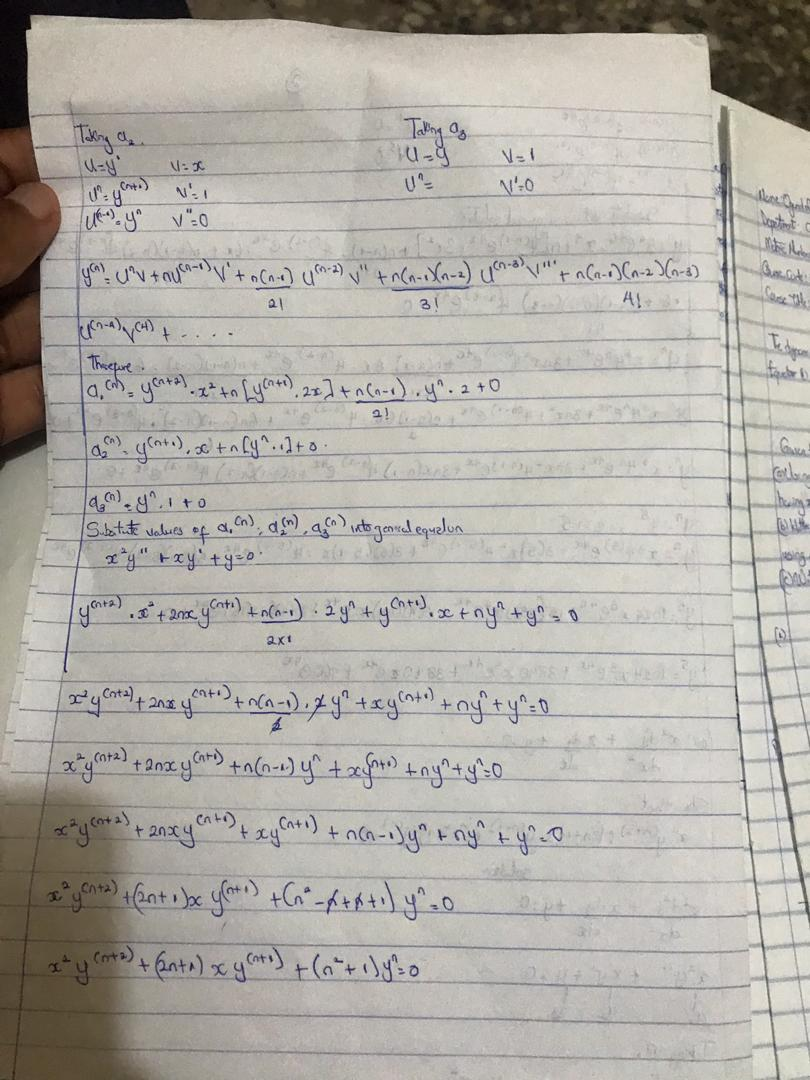 Taking a₂. Taking a₃
U=y' V=x U=y V=1
Uⁿ=y⁽ⁿ⁺¹⁾ V'=1 Uⁿ= V'=0
U⁽ⁿ⁻¹⁾=yⁿ V''=0
y⁽ⁿ⁾=UⁿV+nU⁽ⁿ⁻¹⁾V'+n(n-1)/2! U⁽ⁿ⁻²⁾V''+n(n-1)(n-2)/3! U⁽ⁿ⁻³⁾V'''+n(n-1)(n-2)(n-3)/4!
U⁽ⁿ⁻⁴⁾V⁽⁴⁾+.....
Therefore.
a₁⁽ⁿ⁾=y⁽ⁿ⁺²⁾·x²+n[y⁽ⁿ⁺¹⁾·2x]+n(n-1)/2!·yⁿ·2+0
a₂⁽ⁿ⁾=y⁽ⁿ⁺¹⁾·x+n[yⁿ·1]+0.
a₃⁽ⁿ⁾=yⁿ·1+0
values of a₁⁽ⁿ⁾, a₂⁽ⁿ⁾, a₃⁽ⁿ⁾ into general
x²y''+xy'+y=0.
y⁽ⁿ⁺²⁾·x²+2nxy⁽ⁿ⁺¹⁾+n(n-1)/2×1·2yⁿ+y⁽ⁿ⁺¹⁾·x+nyⁿ+yⁿ=0
x²y⁽ⁿ⁺²⁾+2nxy⁽ⁿ⁺¹⁾+n(n-1)/2·2yⁿ+xy⁽ⁿ⁺¹⁾+nyⁿ+yⁿ=0
x²y⁽ⁿ⁺²⁾+2nxy⁽ⁿ⁺¹⁾+n(n-1)yⁿ+xy⁽ⁿ⁺¹⁾+nyⁿ+yⁿ=0
x²y⁽ⁿ⁺²⁾+2nxy⁽ⁿ⁺¹⁾+xy⁽ⁿ⁺¹⁾+n(n-1)yⁿ+nyⁿ+yⁿ=0
x²y⁽ⁿ⁺²⁾+(2n+1)xy⁽ⁿ⁺¹⁾+(n²-n+n+1)yⁿ=0
x²y⁽ⁿ⁺²⁾+(2n+1)xy⁽ⁿ⁺¹⁾+(n²+1)yⁿ=0